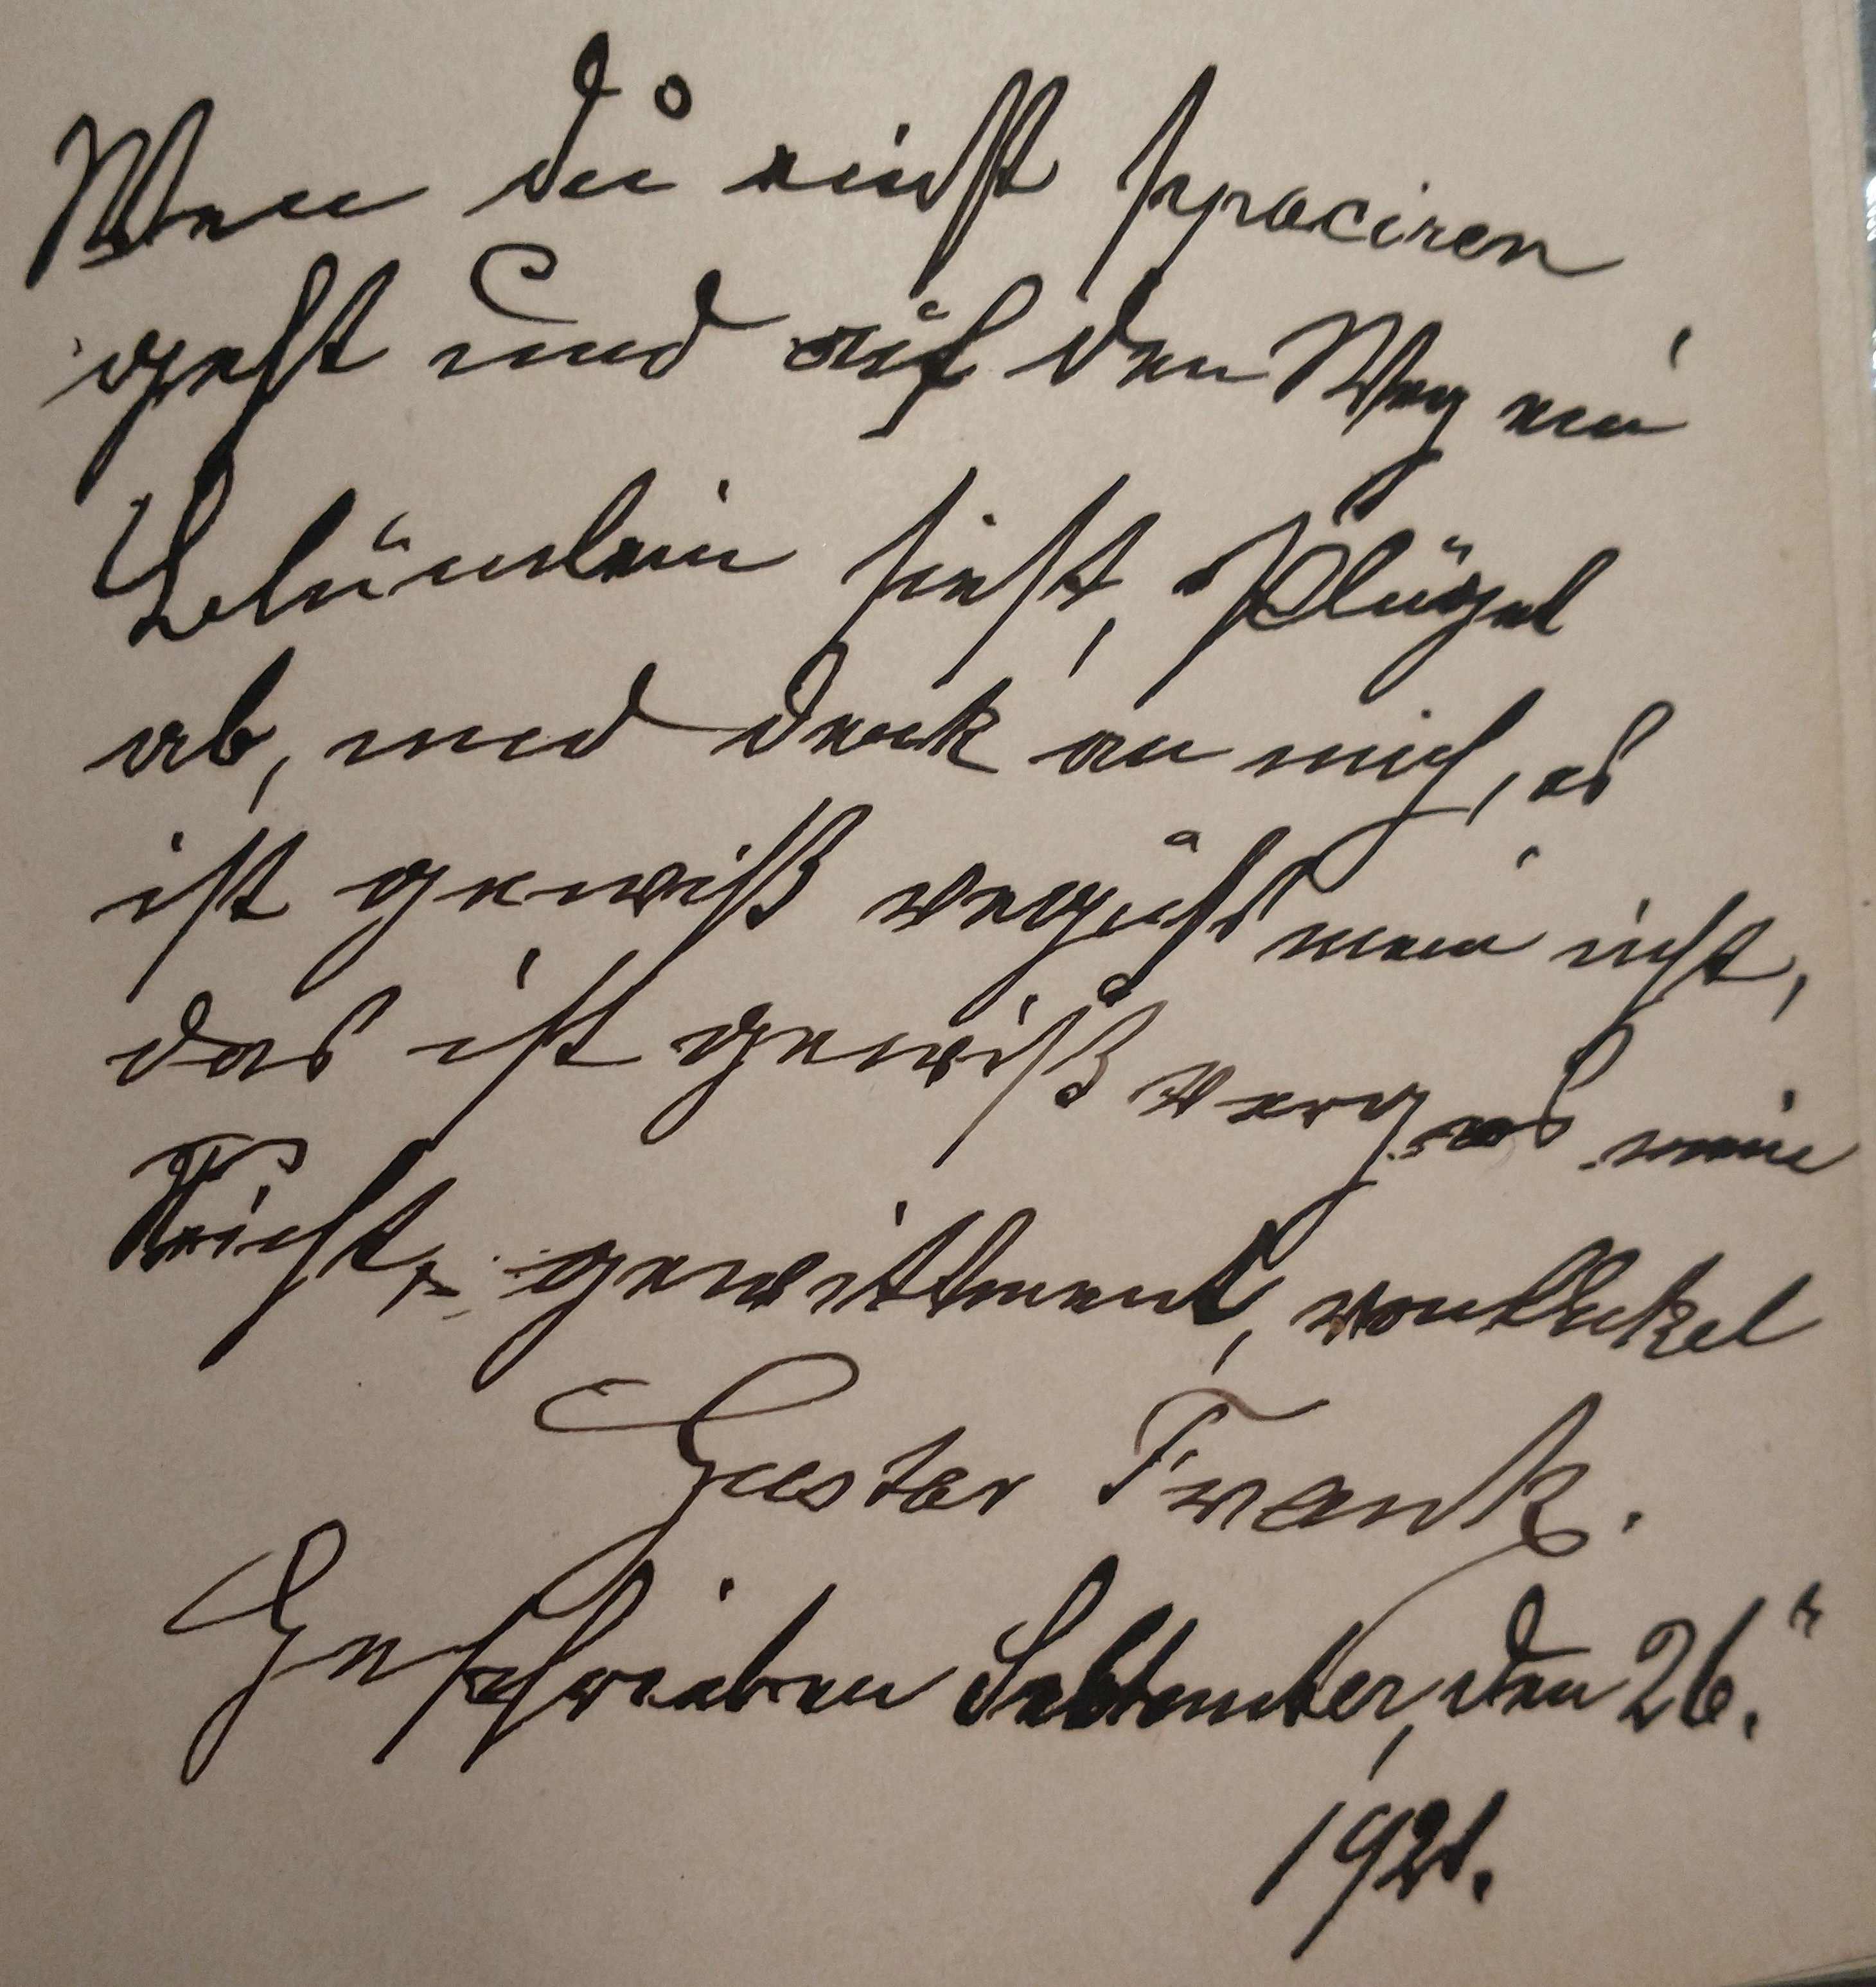 Wen du einst spaciren
gehst und auf den Weg ein
Blümlein siehst, Plügel
ab, und denk an mich, es
ist gewiß mein nicht,
das ist gewiß mein
nicht, gewitment, von Onkel
Gustav Frank.
Geschrieben Sebtember, den 26.
1921.